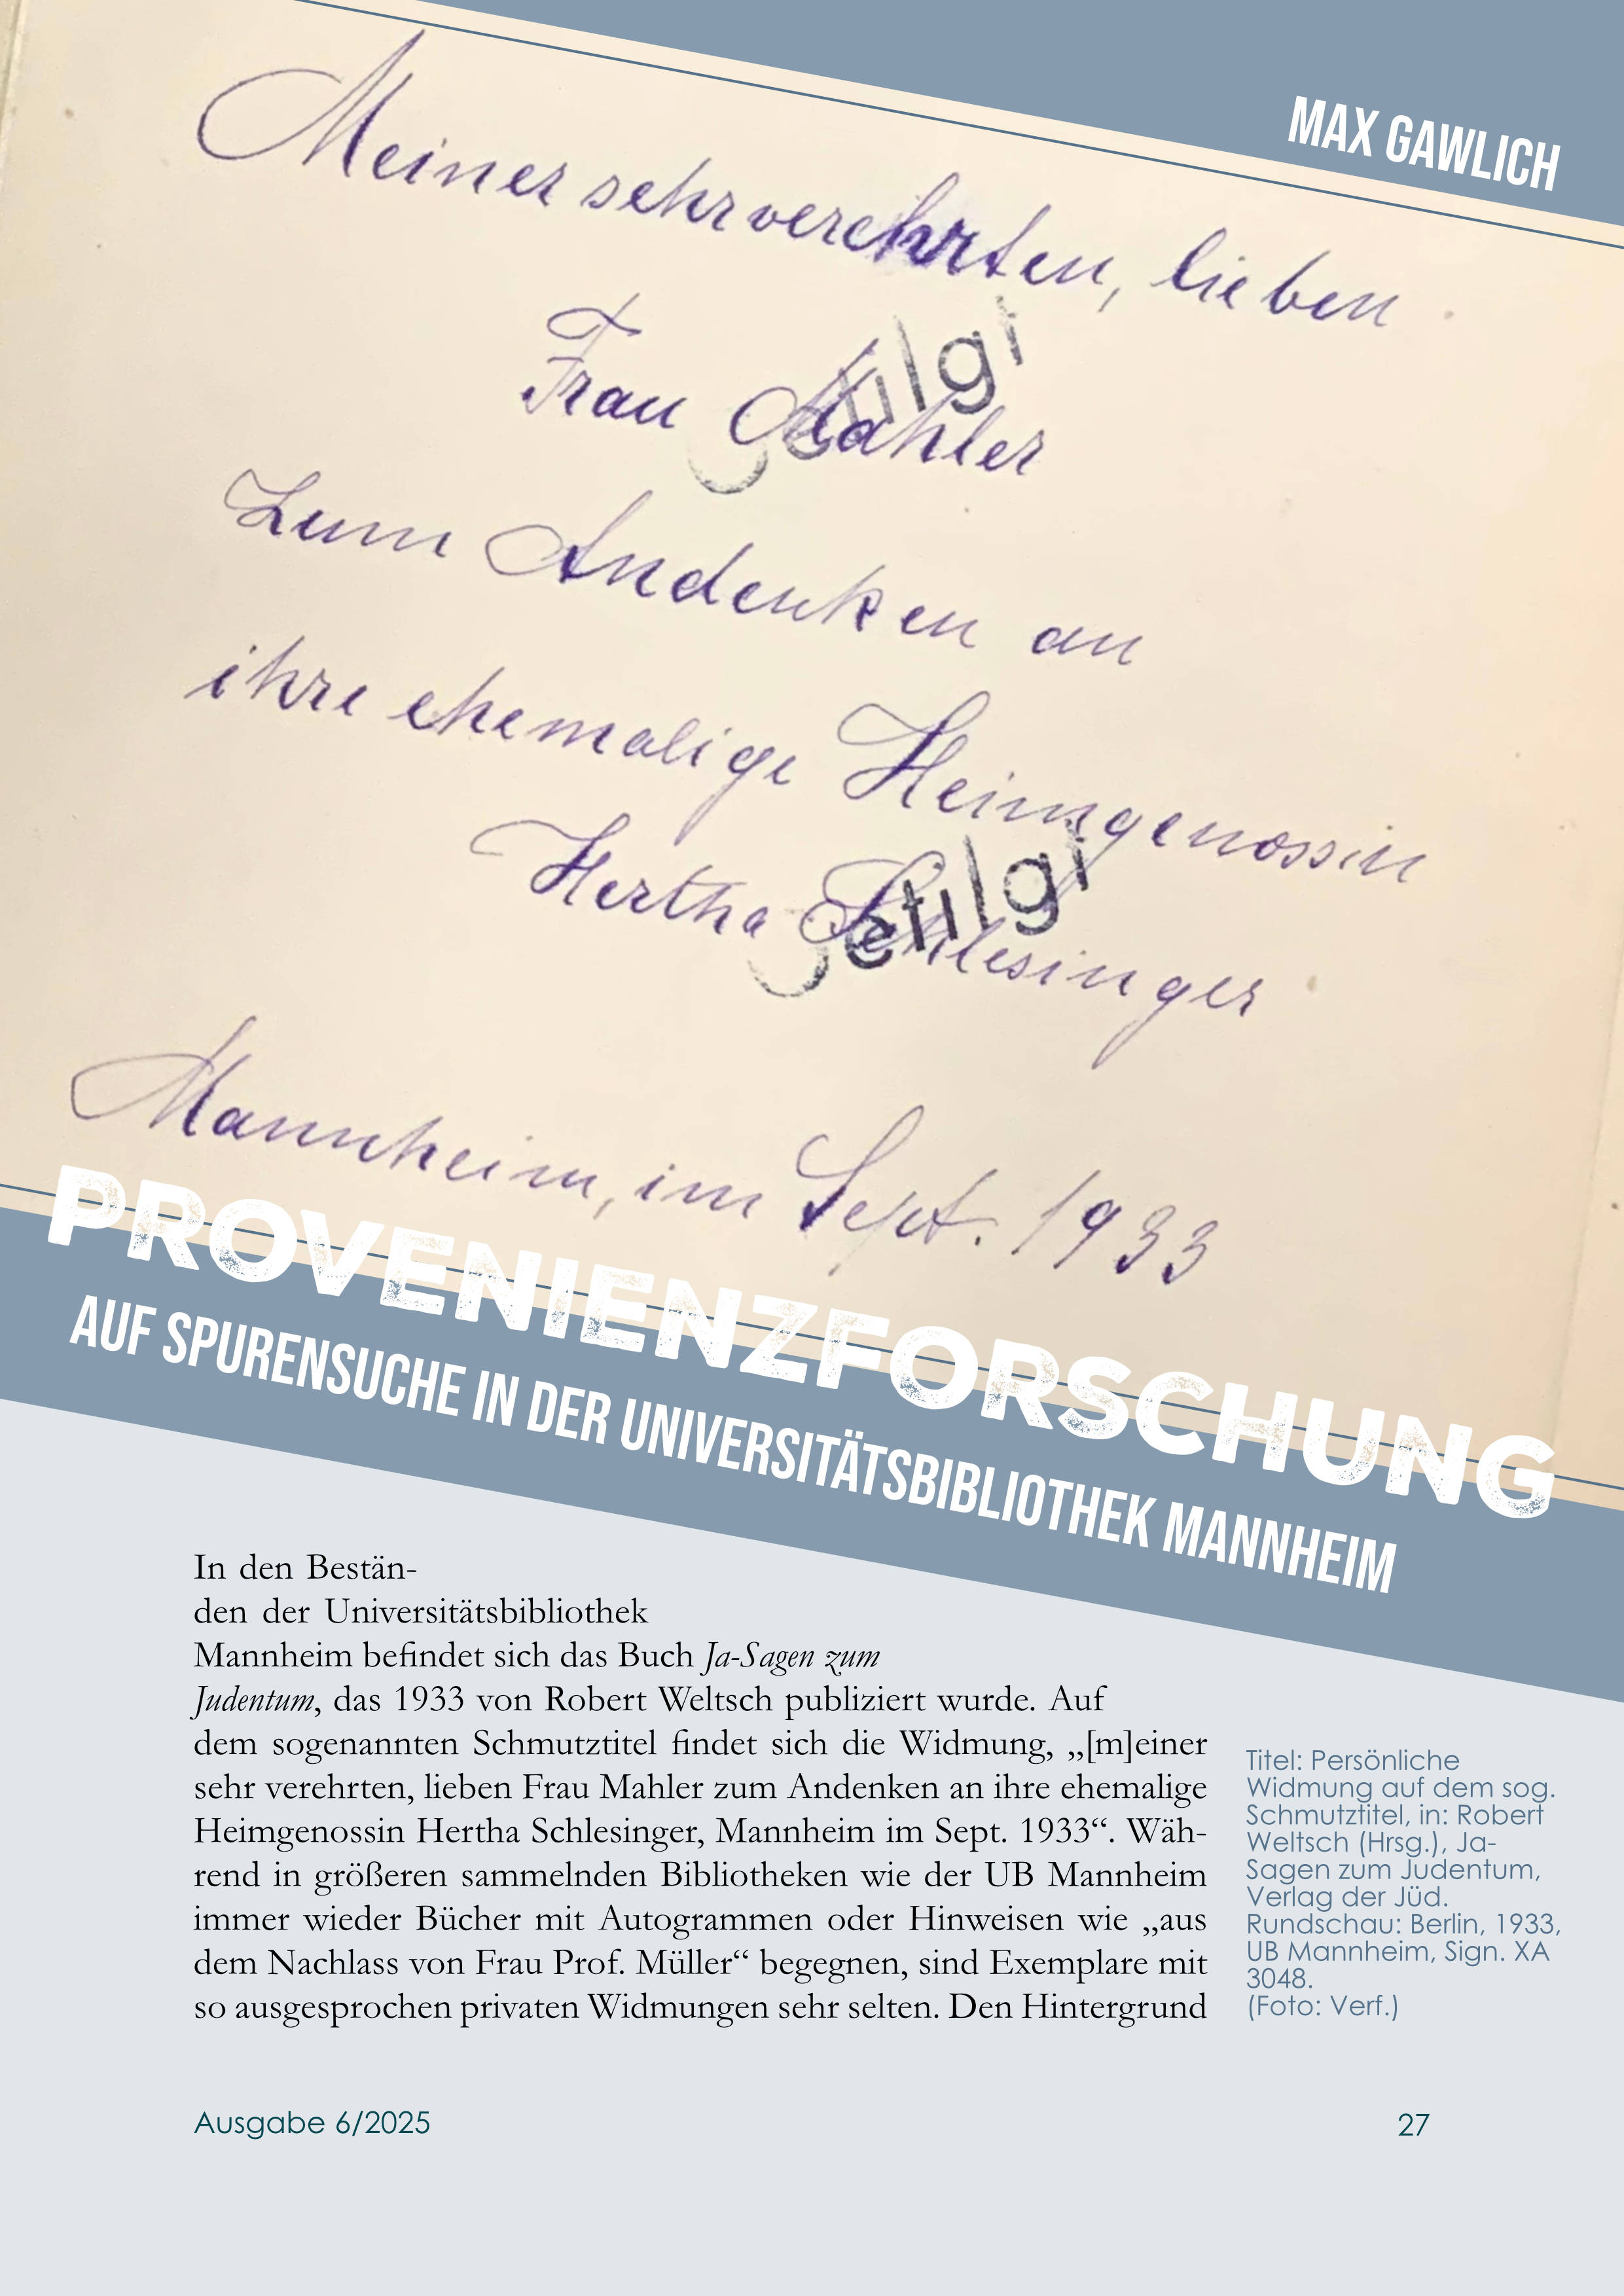 MAX GAWLICH
Meiner sehr verehrten, lieben
Frau Mahler
Zum Andenken an
ihre ehemalige Heimgenossin
Hertha Schlesinger
Mannheim, im Sept. 1933
getilgt
getilgt
PROVENIENZFORSCHUNG
AUF SPURENSUCHE IN DER UNIVERSITÄTSBIBLIOTHEK MANNHEIM
In den Bestän-
den der Universitätsbibliothek
Mannheim befindet sich das Buch Ja-Sagen zum
Judentum, das 1933 von Robert Weltsch publiziert wurde. Auf
dem sogenannten Schmutztitel findet sich die Widmung, „[m]einer
sehr verehrten, lieben Frau Mahler zum Andenken an ihre ehemalige
Heimgenossin Hertha Schlesinger, Mannheim im Sept. 1933“. Wäh-
rend in größeren sammelnden Bibliotheken wie der UB Mannheim
immer wieder Bücher mit Autogrammen oder Hinweisen wie „aus
dem Nachlass von Frau Prof. Müller“ begegnen, sind Exemplare mit
so ausgesprochen privaten Widmungen sehr selten. Den Hintergrund
Titel: Persönliche
Widmung auf dem sog.
Schmutztitel, in: Robert
Weltsch (Hrsg.), Ja-
Sagen zum Judentum,
Verlag der Jüd.
Rundschau: Berlin, 1933,
UB Mannheim, Sign. XA
3048.
(Foto: Verf.)
Ausgabe 6/2025
27